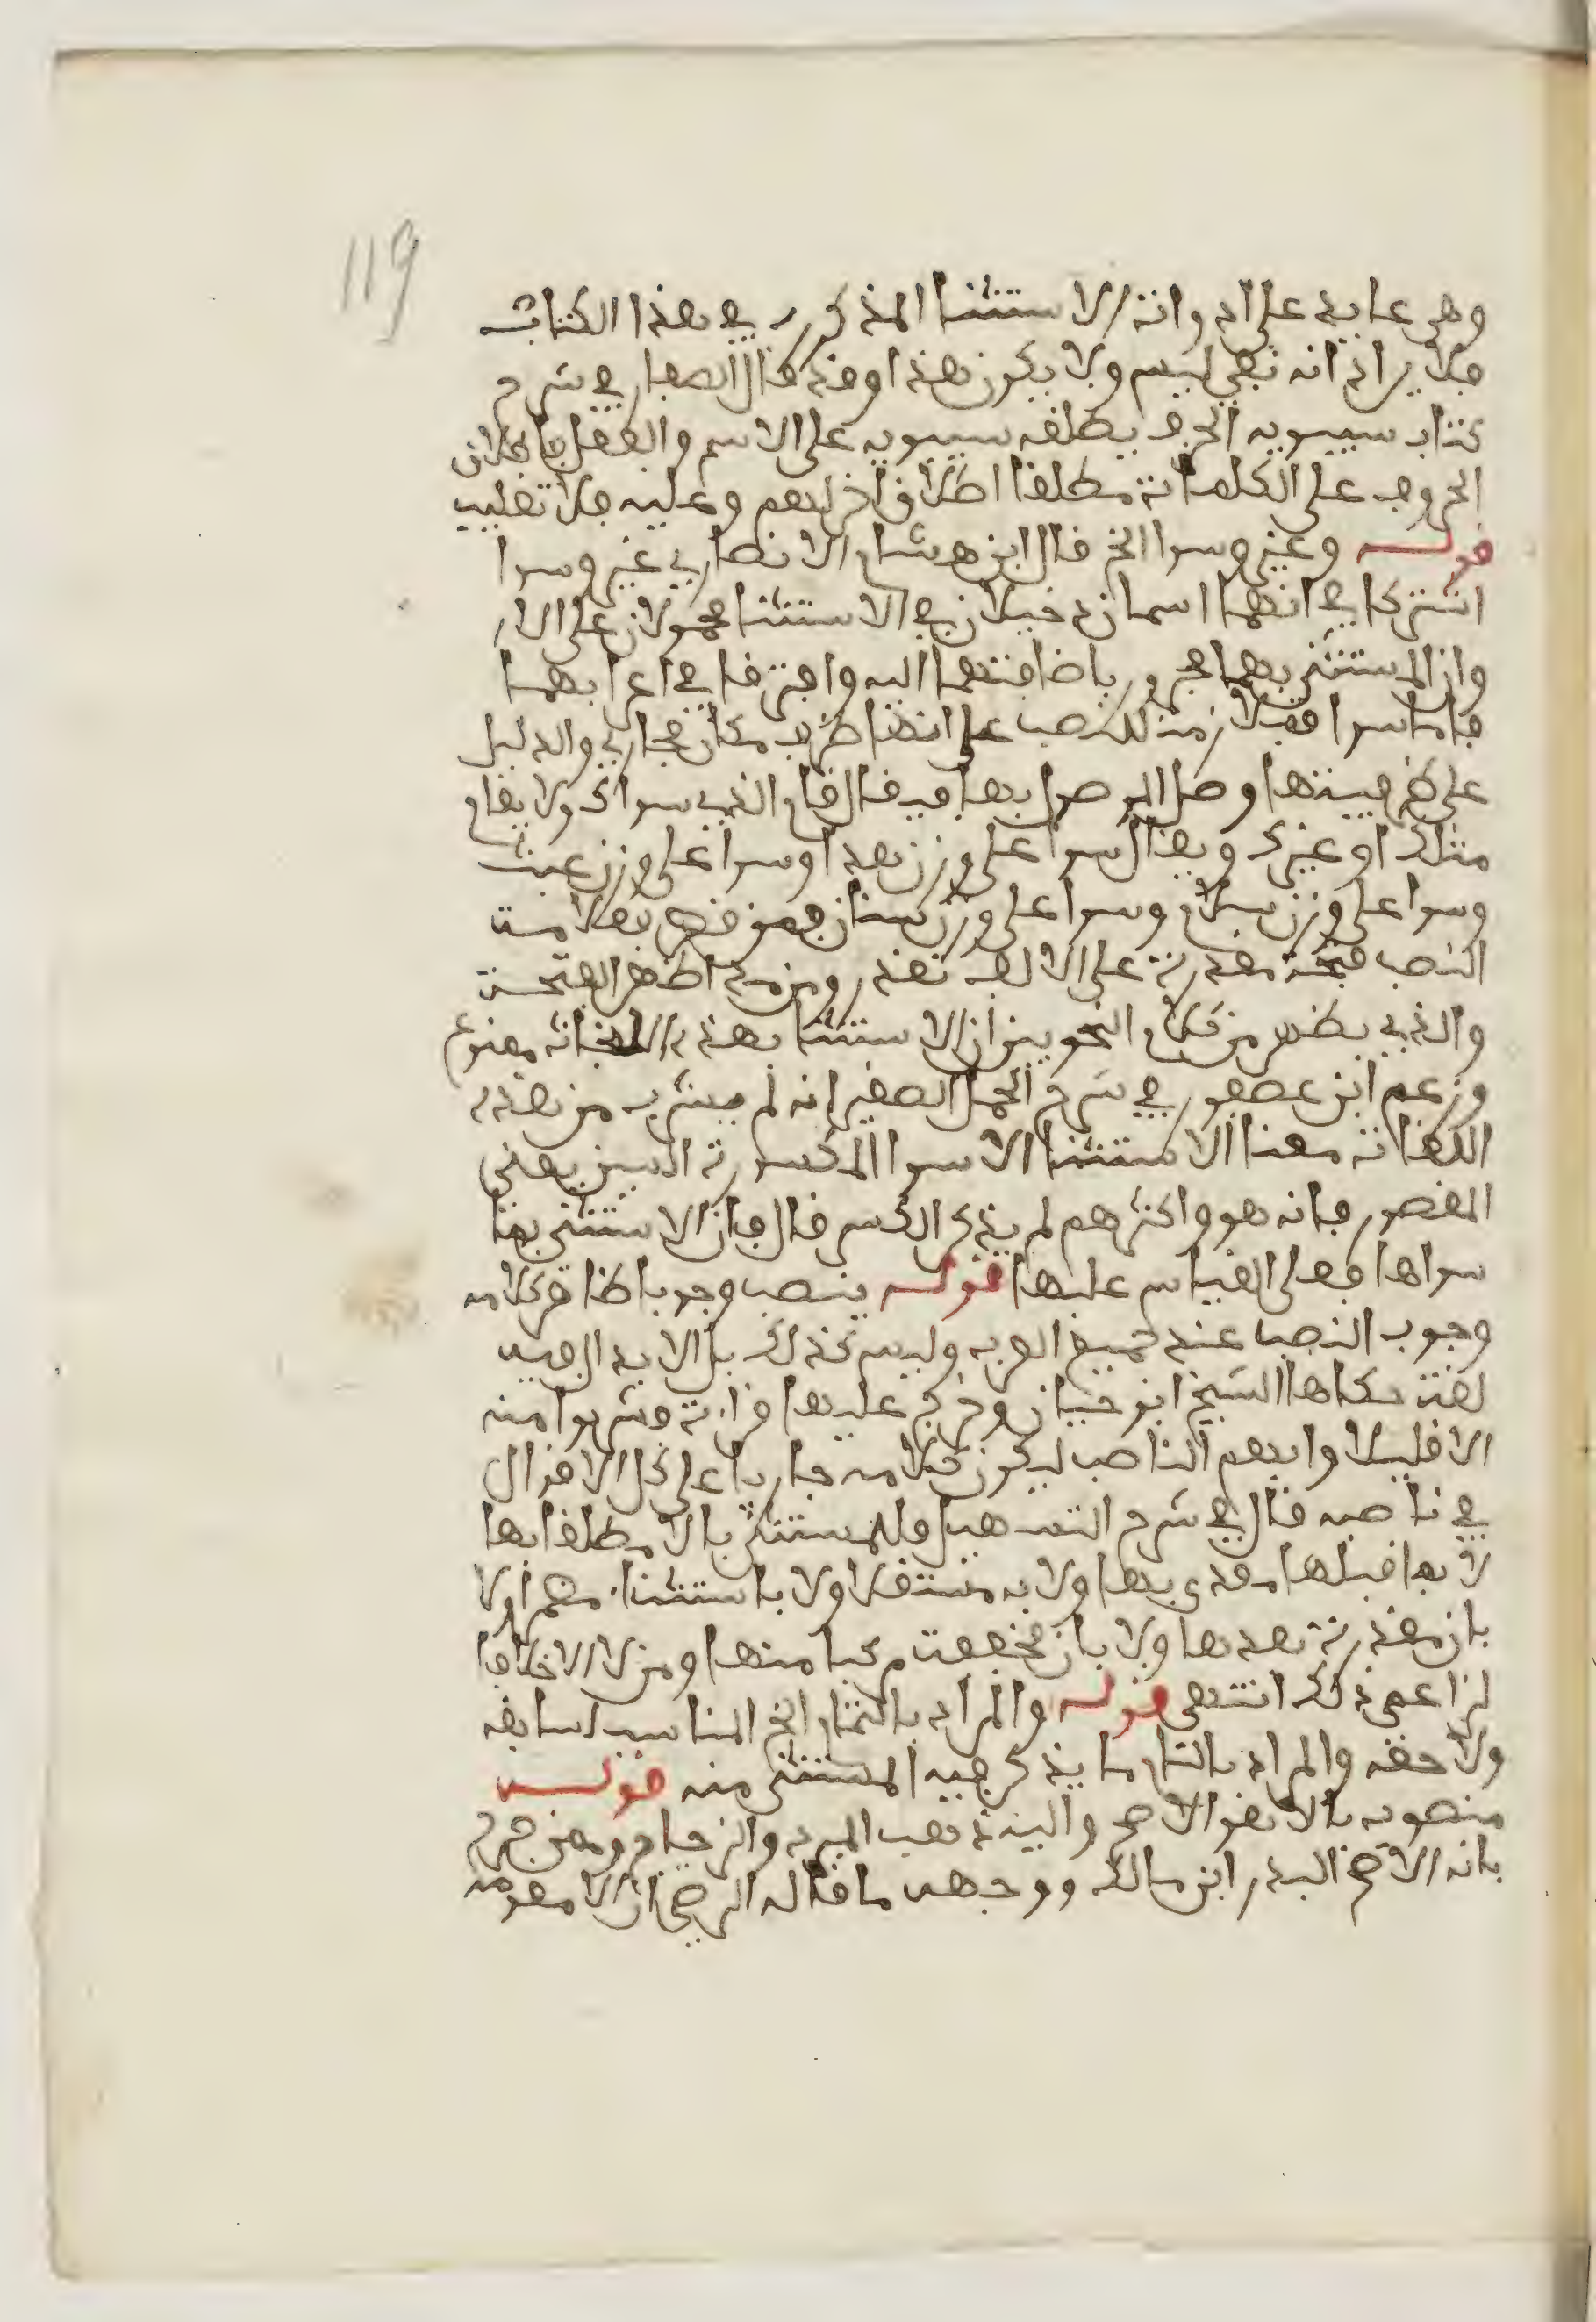 119
وهي عايد على ادوات الاستثنا المذكور في هذا الكتاب
فلا يراد انه بقي ليس ولا يكون هذا وقد قال الصفار في شرح
كتاب سيبويه الحرف يطلقه سيبويه على الاسم والفعل فاطلاق
الحروف على الكلمات مطلقا اطلاق اخر لهم وعليه فلا تغليب
قوله وغير وسوا الخ قال ابن هشام الانصاري غير وسوا
اشتركا في انهما اسمان دخيلان في الاستثنا محمولان على الا
وان المستثنى بهما مجرور باضافتهما اليه وافترقا في اعرابهما
فاما سوا فملازمة للنصب على انها ظرف مكان مجازي والدليل
على ظرفيتها وصل الموصول بها فيقال قام الذي سواك ولا يقال
مثلك او غيرك ويقال سوا على وزن هدا وسوا على وزن عنب
وسوا على وزن سلام وسوا على وزن سنان فمن قصر فعلامة
النصب فتحة مقدرة على الالف تعذرا ومن مد اظهر الفتحة
والذي يظهر من كلام النحويين ان الاستثنا بهذه اللغات ممنوع
وزعم ابن عصفور في شرح الجمل الصغير انه لم يشرب من هذه
اللغات معنا الاستثنا الا سوا المكسورة السين يعني
المقصور فانه هو واكثرهم لم يذكر الكسر قال فان استثني بما
سواها فعلى القياس عليها قوله ينصب وجوبا ظاهر كلامه
وجوب النصب عند جميع العرب وليس كذلك بل الابدال فيه
لغة حكاها الشيخ ابو حيان وخرج عليها قراءة فشربوا منه
الا قليلا وابهم الناصب ليكون كلامه جاريا على كل الاقوال
في ناصبه قال في شرح التسهيل وللمستثنى بالا مطلقا بها
لا بما قبلها معدى بها ولا به مستقلا ولا باستثنا مضمرا ولا
بان مقدرة بعدها ولا بان مخففة مركبا منها ومن لا الا خلافا
لزاعمي ذلك انتهى قوله والمراد بالتمام الخ المناسب لسابقه
ولاحقه والمراد بالتام ما يذكر فيه المستثنى منه قوله
منصوب بالا هو الاصح واليه ذهب المبرد والزجاج وممن صرح
بانه الاصح البدر ابن مالك ووجهه ما قاله الرضي ان الا مقومة